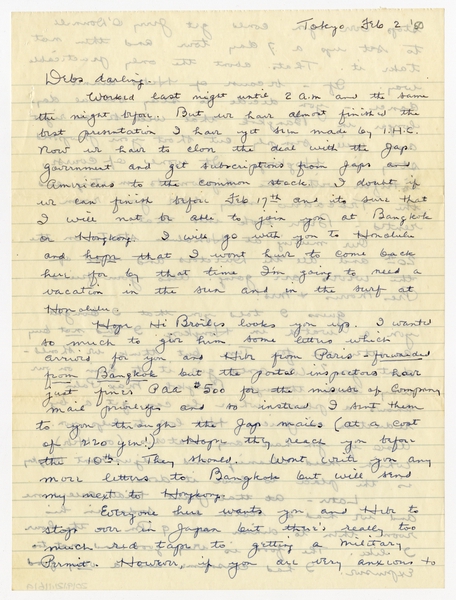 Tokyo Feb 2 '50
Debs darling.
Worked last night until 2 A.M and the same
the night before. But we have almost finished the
best presentation I have yet seen made by I.H.C.
Now we have to close the deal with the Jap
government and get subscriptions from Japs and
Americans to the common stock. I doubt if
we can finish before Feb 17th and its sure that
I will not be able to join you at Bangkok
or Hongkong. I will go with you to Honolulu
and hope that I wont have to come back
here for by that time I'm going to need a
vacation in the sun and in the surf at
Honolulu.
Hope Hi Broiles looks you up. I wanted
so much to give him some letters which
arrived for you and Hebe from Paris - forwarded
from Bangkok but the postal inspectors have
just fined PAA $500 for the misuse of Company
mail privileges and so instead I sent them
to you through the Jap mails (at a cost
of 220 yen!) Hope they reach you before
the 10th. They should. Wont write you any
more letters to Bangkok but will send
my next to Hongkong.
Everyone here wants you and Hebe to
stop over in Japan but there's really too
much red tape to getting a military
Permit. However, if you are very anxious to